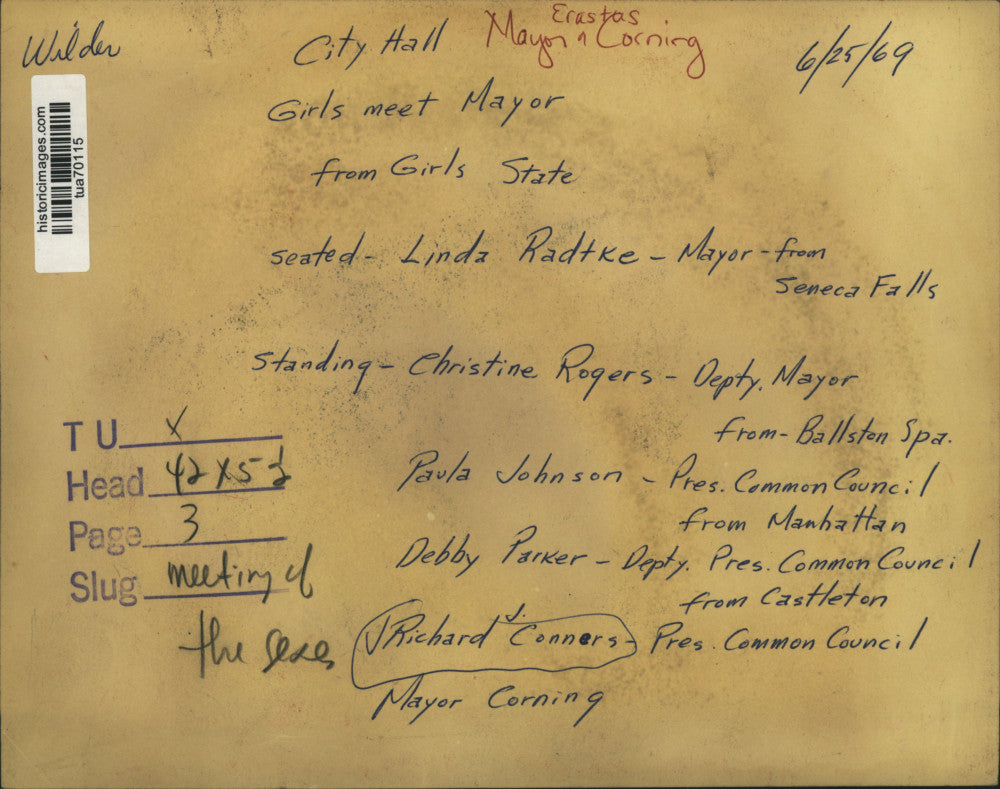 Wilder
City Hall
Erastus
Mayor ^ Corning
6/25/69
historicimages.com
tua70115
Girls meet Mayor
from Girls State
seated - Linda Radtke - Mayor - from
Seneca Falls
Standing - Christine Rogers - Depty. Mayor
from - Ballston Spa.
Paula Johnson - Pres. Common Council
from Manhattan
Debby Parker - Depty. Pres. Common Council
from Castleton
Richard J. Conners - Pres. Common Council
Mayor Corning
T U X
Head 42 X 5
Page 3
Slug meeting of
the